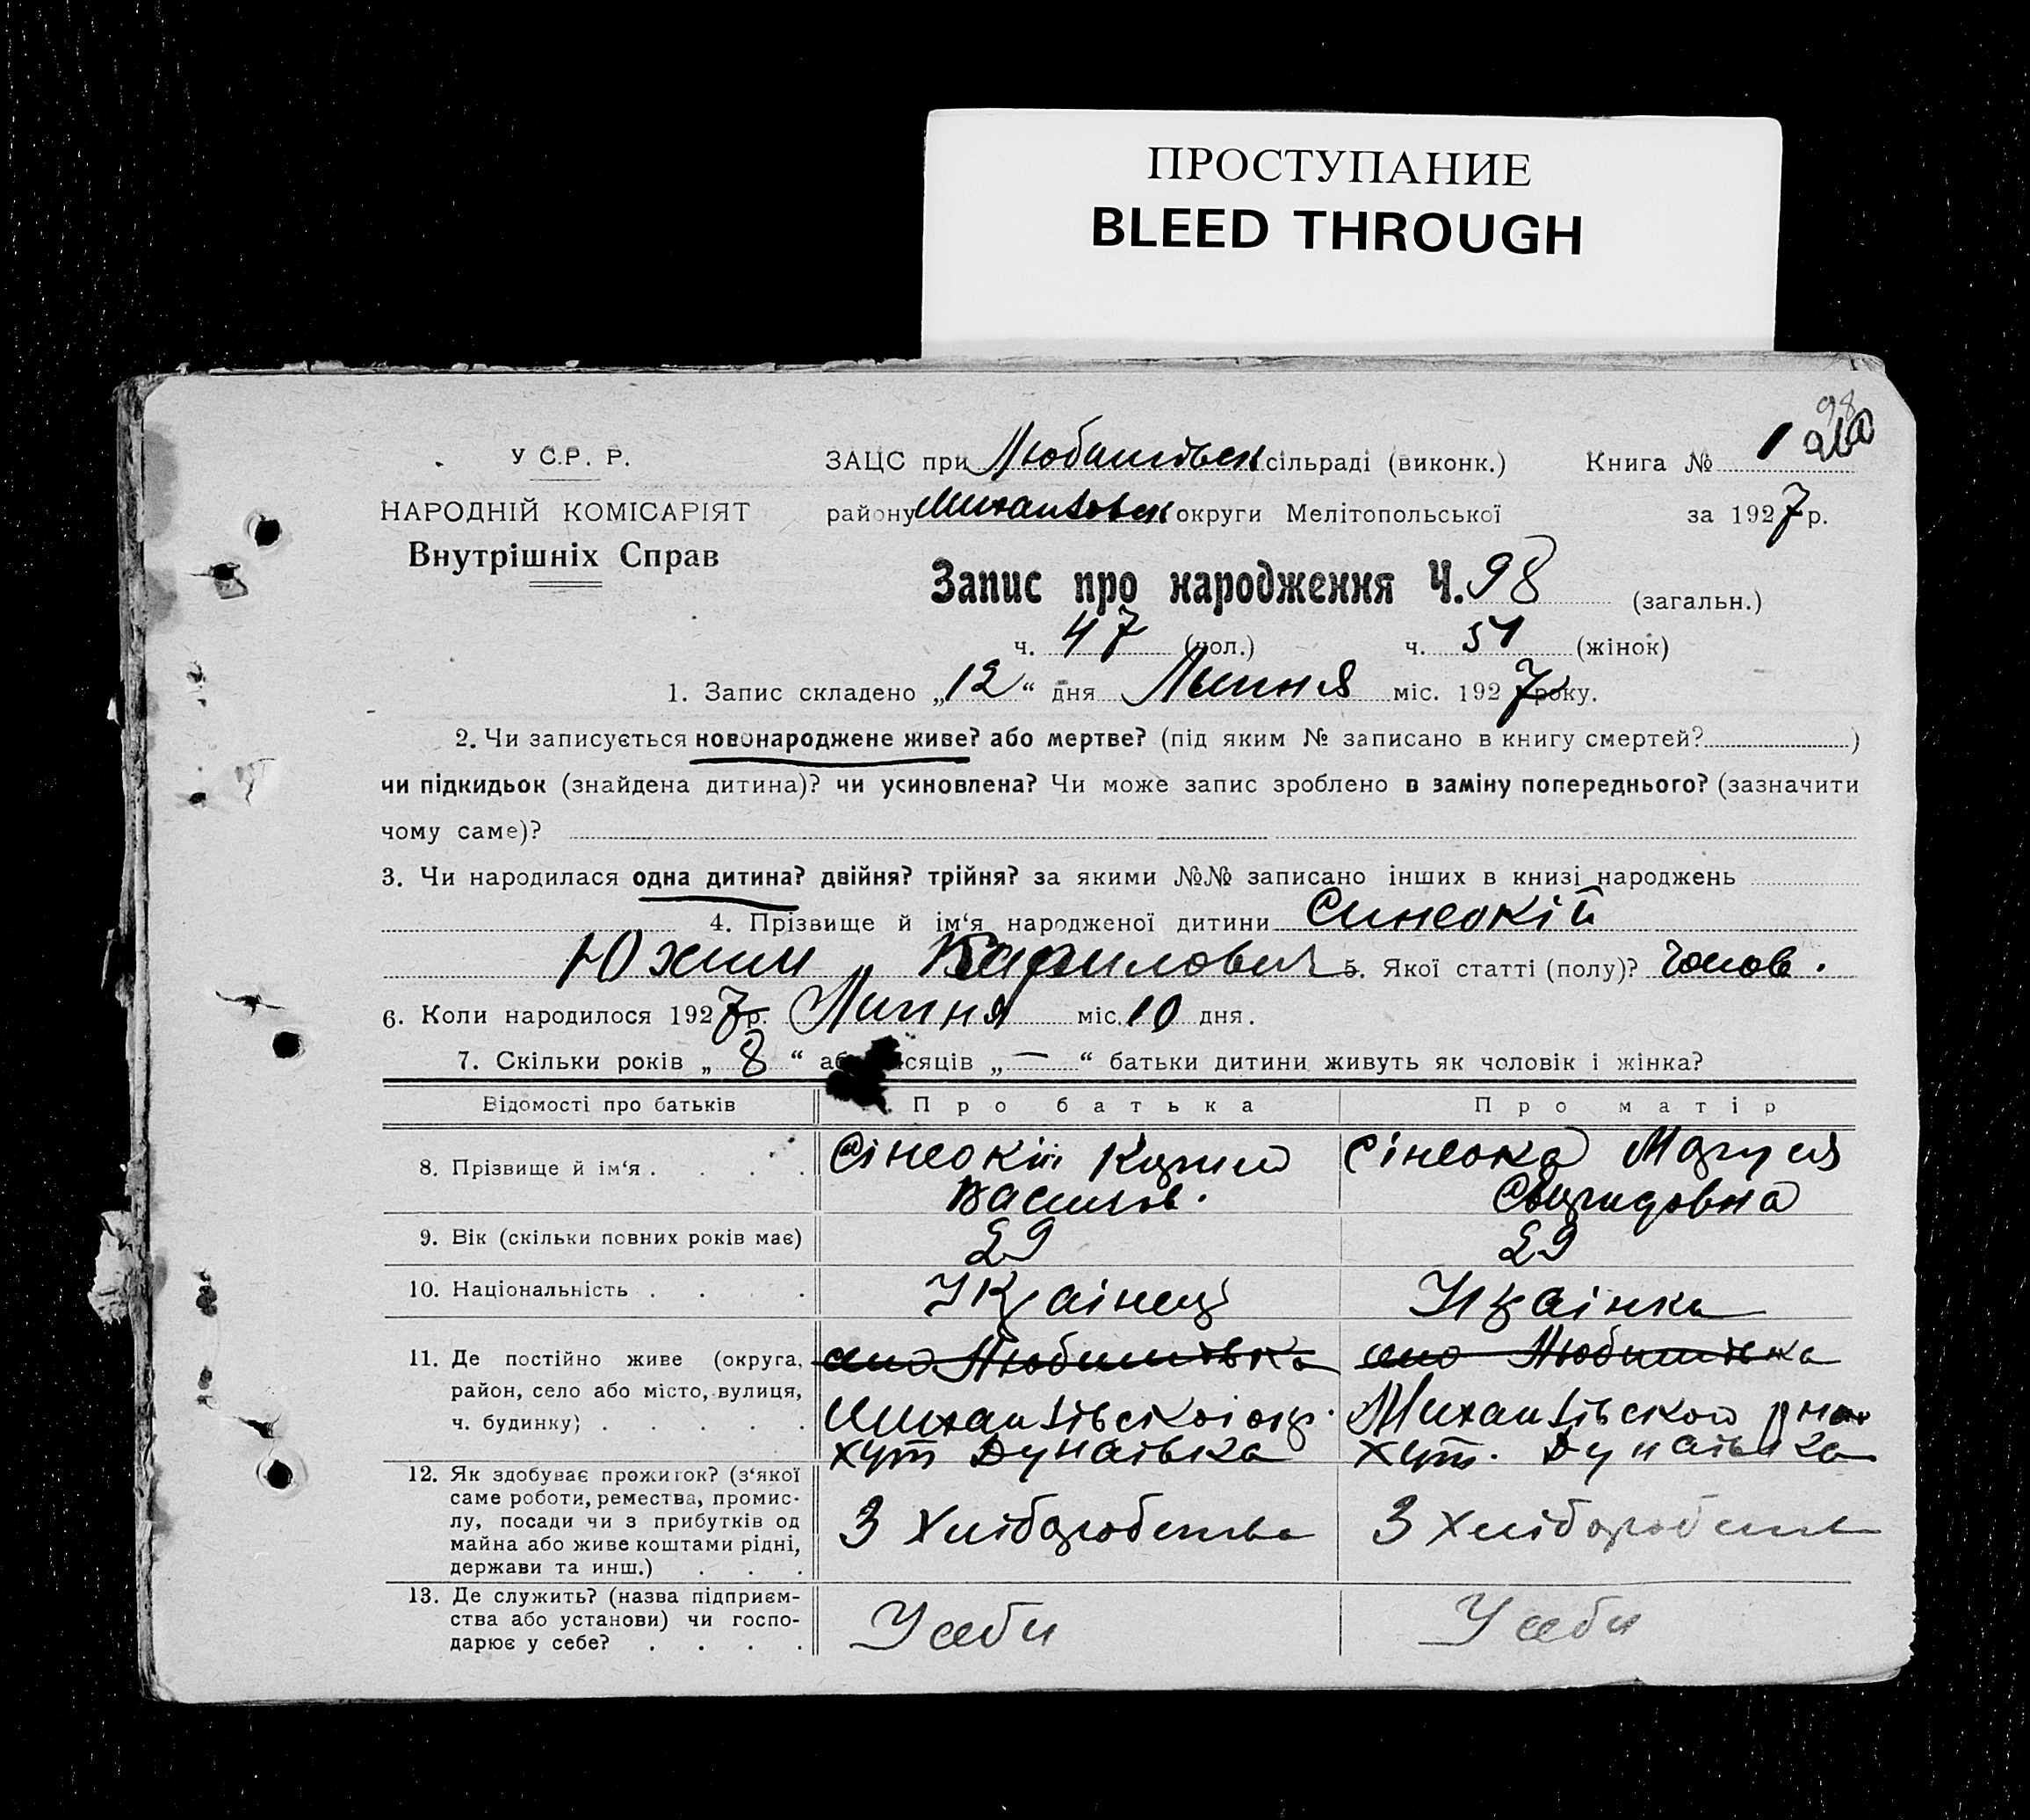 ПРОСТУПАНИЕ
BLEED THROUGH
98
У С.Р. Р.
ЗАЦС при Любашівськ сільраді (виконк.) Книга № 1
НАРОДНІЙ КОМІСАРІЯТ
району округи Мелітопольської за 1927 р.
Внутрішніх Справ
Запис про народження Ч. 98 (загальн.)
ч. 47 (чол.) ч. 51 (жінок)
1. Запис складено „12“ дня Липня міс. 1927 року.
2. Чи записується новонароджене живе? або мертве? (під яким № записано в книгу смертей? )
чи підкидьок (знайдена дитина)? чи усиновлена? Чи може запис зроблено в заміну попереднього? (зазначити
чому саме)?
3. Чи народилася одна дитина? двійня? трійня? за якими №№ записано інших в книзі народжень
4. Прізвище й ім‘я народженої дитини Синеокій
Юхим Кирилович 5. Якої статті (полу)? чолов.
6. Коли народилося 1927 р. Липня міс. 10 дня.
7. Скільки років „ 8 “ або місяців „ — “ батьки дитини живуть як чоловік і жінка?
Відомості про батьків Про батька Про матір
8. Прізвище й ім‘я . . . . Сінеокій Кирило Сінеока Маруся
Васильов. Свиридовна
9. Вік (скільки повних років має) 29 29
10. Національність . . . . Украінець Украінка
11. Де постійно живе (округа, село Любимівка село Любимівка
район, село або місто, вулиця,
ч. будинку) . . . . . Михайлівськоі Михайлівськой
хут Дунаівка хут. Дунаівка
12. Як здобуває прожиток? (з‘якої
саме роботи, ремества, промис-
лу, посади чи з прибутків од З хліборобства З хліборобства
майна або живе коштами рідні,
держави та инш.) . . .
13. Де служить? (назва підприєм-
ства або установи) чи госпо- У себи У себи
дарює у себе? . . . .